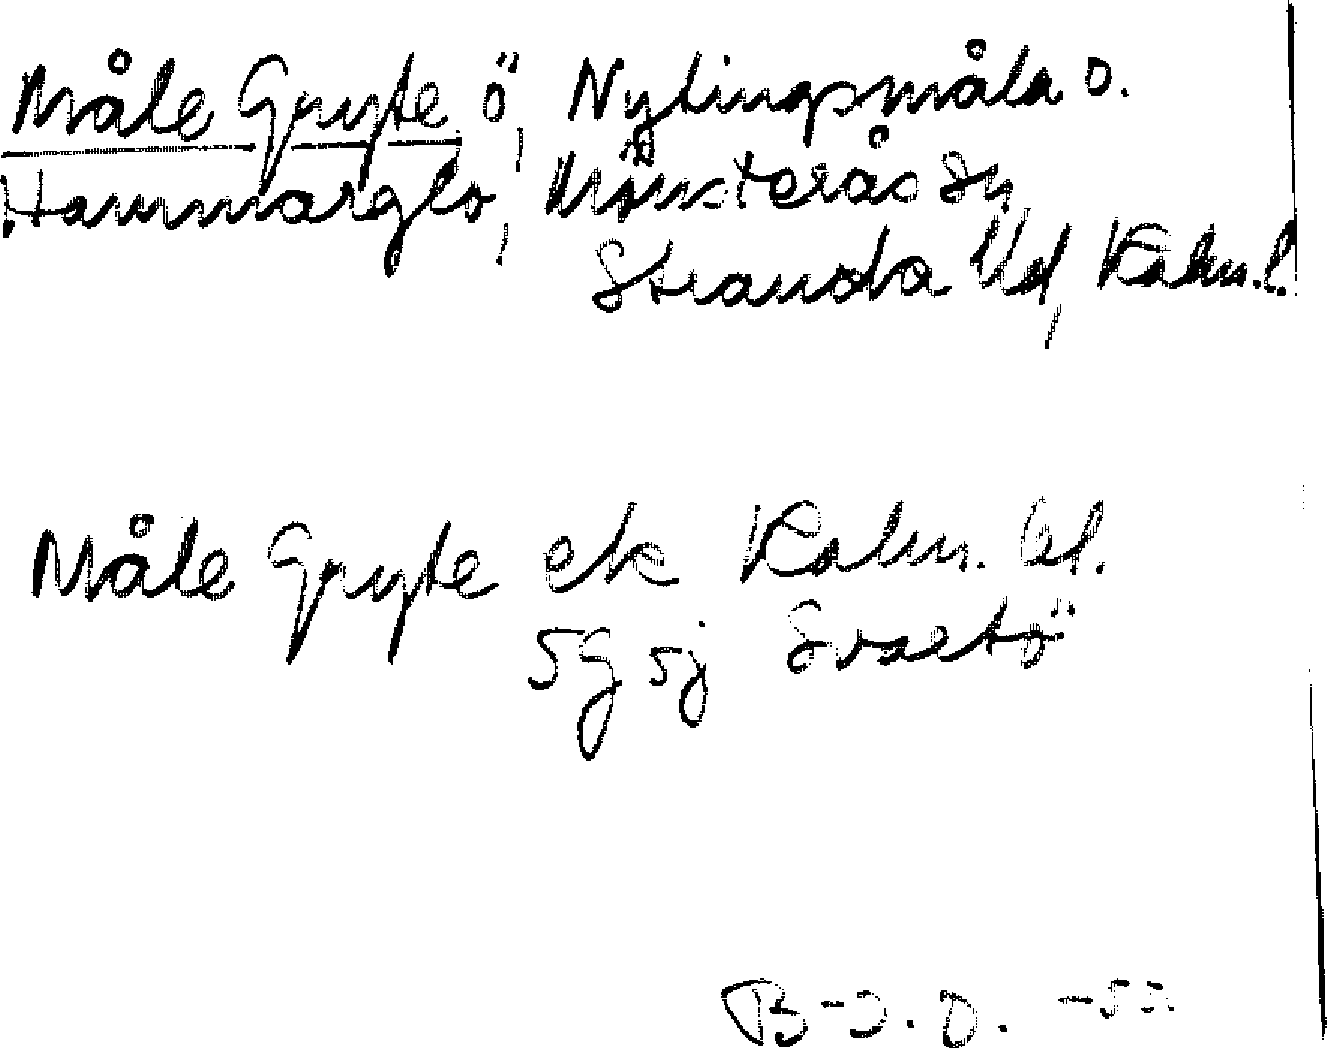 Måle Gryte ö, Nylingsmåla o.
Hammarglo, Mönsterås sn,
Stranda hd, Kalm. l.
Måle Gryte ek Kalm. bl.
5g 5j Svartö
B-J. O. -53.